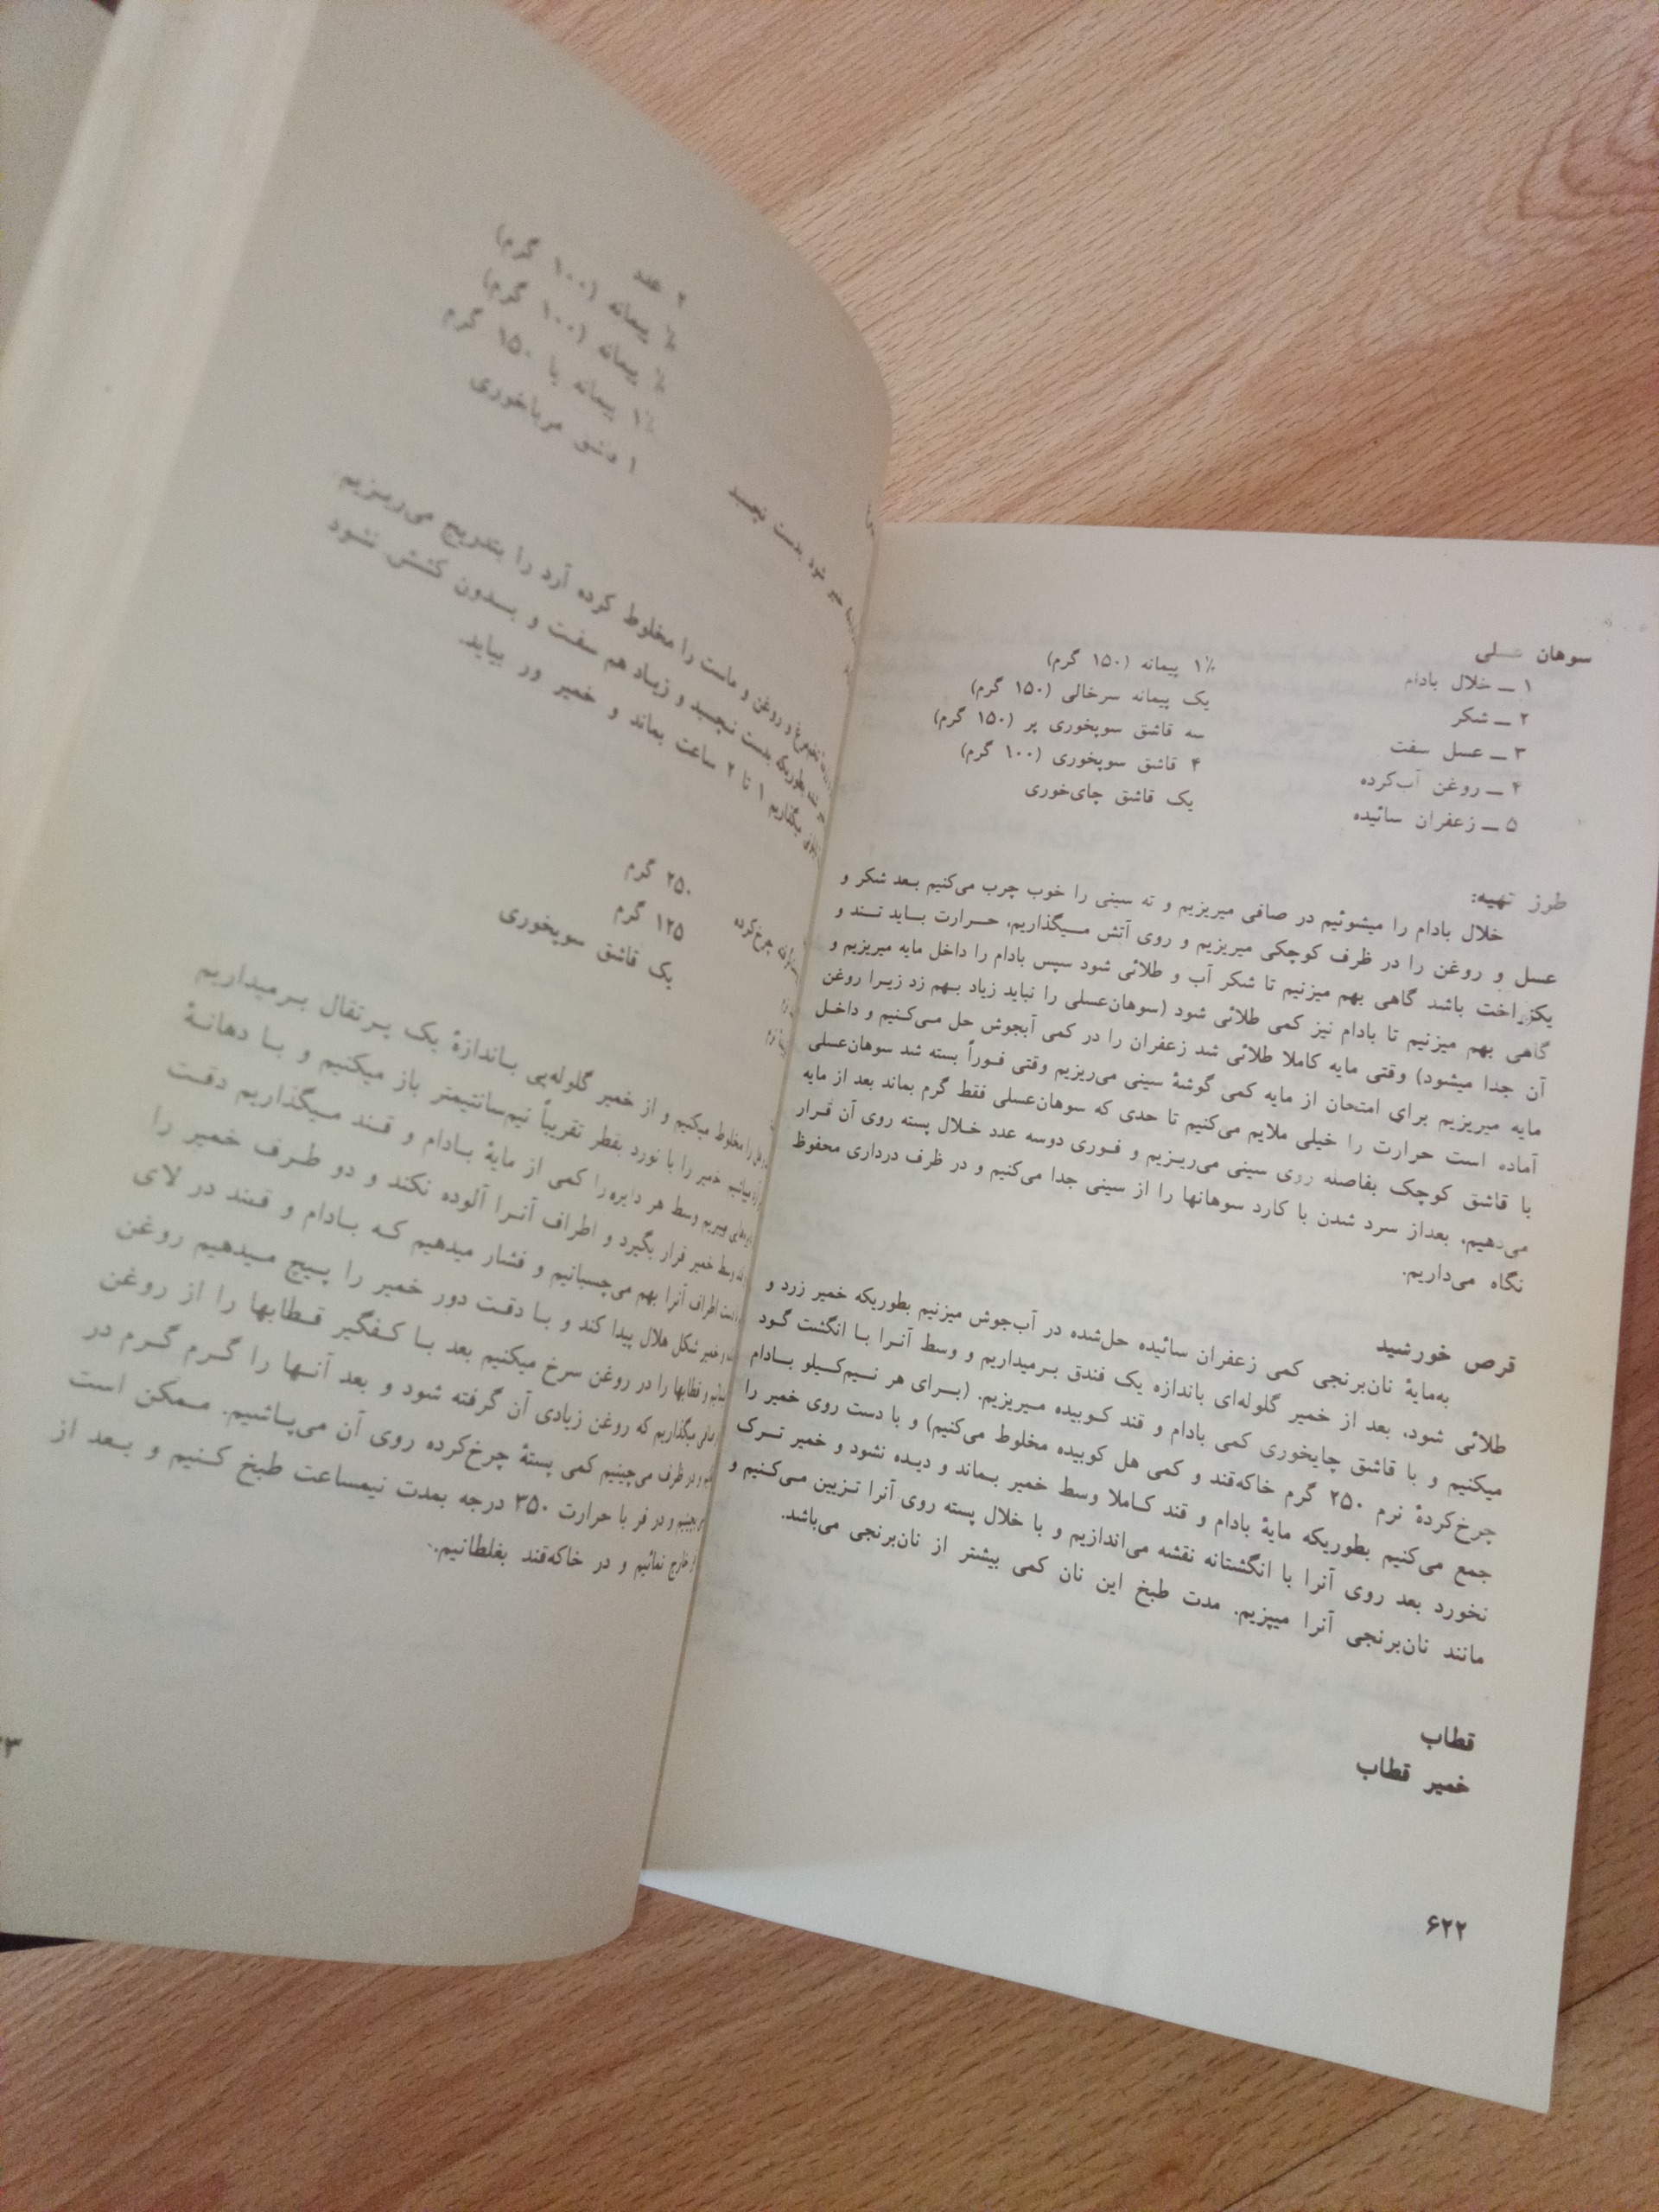 سوهان عسلی
۱ — خلال بادام ۱½ پیمانه (۱۵۰ گرم)
۲ — شکر یک پیمانه سرخالی (۱۵۰ گرم)
۳ — عسل سفت سه قاشق سوپخوری پر (۱۵۰ گرم)
۴ — روغن آب‌کرده ۴ قاشق سوپخوری (۱۰۰ گرم)
۵ — زعفران سائیده یک قاشق چای‌خوری
طرز تهیه:
خلال بادام را میشوئیم در صافی میریزیم و ته سینی را خوب چرب می‌کنیم بعد شکر و
عسل و روغن را در ظرف کوچکی میریزیم و روی آتش میگذاریم، حرارت باید تند و
یکنواخت باشد گاهی بهم میزنیم تا شکر آب و طلائی شود سپس بادام را داخل مایه میریزیم و
گاهی بهم میزنیم تا بادام نیز کمی طلائی شود (سوهان‌عسلی را نباید زیاد بهم زد زیرا روغن
آن جدا میشود) وقتی مایه کاملا طلائی شد زعفران را در کمی آبجوش حل می‌کنیم و داخل
مایه میریزیم برای امتحان از مایه کمی گوشهٔ سینی می‌ریزیم وقتی فوراً بسته شد سوهان‌عسلی
آماده است حرارت را خیلی ملایم می‌کنیم تا حدی که سوهان‌عسلی فقط گرم بماند بعد از مایه
با قاشق کوچک بفاصله روی سینی می‌ریزیم و فوری دوسه عدد خلال پسته روی آن قرار
می‌دهیم، بعداز سرد شدن با کارد سوهانها را از سینی جدا می‌کنیم و در ظرف درداری محفوظ
نگاه می‌داریم.
قرص خورشید
به‌مایهٔ نان‌برنجی کمی زعفران سائیده حل‌شده در آب‌جوش میزنیم بطوریکه خمیر زرد و
طلائی شود، بعد از خمیر گلوله‌ای باندازه یک فندق برمیداریم و وسط آنرا با انگشت گود
میکنیم و با قاشق چایخوری کمی بادام و قند کوبیده میریزیم. (برای هر نیم‌کیلو بادام
چرخ‌کردهٔ نرم ۲۵۰ گرم خاکه‌قند و کمی هل کوبیده مخلوط می‌کنیم) و با دست روی خمیر را
جمع می‌کنیم بطوریکه مایهٔ بادام و قند کاملا وسط خمیر بماند و دیده نشود و خمیر ترک
نخورد بعد روی آنرا با انگشتانه نقشه می‌اندازیم و با خلال پسته روی آنرا تزیین می‌کنیم و
مانند نان‌برنجی آنرا میپزیم. مدت طبخ این نان کمی بیشتر از نان‌برنجی می‌باشد.
قطاب
خمیر قطاب
۶۲۲
۲ عدد
پیمانه (۱۰۰ گرم)
پیمانه (۱۰۰ گرم)
پیمانه یا ۱۵۰ گرم
۱ قاشق مرباخوری
خمیر شود بدست نچسبد
و روغن و ماست را مخلوط کرده آرد را بتدریج می‌ریزیم
بطوریکه بدست نچسبد و زیاد هم سفت و بدون کشش نشود
میگذاریم ۱ تا ۲ ساعت بماند و خمیر ور بیاید.
چرخ‌کرده ۲۵۰ گرم
۱۲۵ گرم
یک قاشق سوپخوری
را مخلوط میکنیم و از خمیر گلوله‌یی باندازهٔ یک پرتقال برمیداریم
خمیر را با نورد بقطر تقریباً نیم‌سانتیمتر باز میکنیم و با دهانهٔ
میبریم وسط هر دایره را کمی از مایهٔ بادام و قند میگذاریم دقت
وسط خمیر قرار بگیرد و اطراف آنرا آلوده نکند و دو طرف خمیر را
اطراف آنرا بهم می‌چسبانیم و فشار میدهیم که بادام و قند در لای
و خمیر شکل هلال پیدا کند و با دقت دور خمیر را پیچ میدهیم روغن
و قطابها را در روغن سرخ میکنیم بعد با کفگیر قطابها را از روغن
صافی میگذاریم که روغن زیادی آن گرفته شود و بعد آنها را گرم گرم در
و در ظرف می‌چینیم کمی پستهٔ چرخ‌کرده روی آن می‌پاشیم. ممکن است
بچینیم و در فر با حرارت ۳۵۰ درجه بمدت نیمساعت طبخ کنیم و بعد از
خارج نمائیم و در خاکه‌قند بغلطانیم.